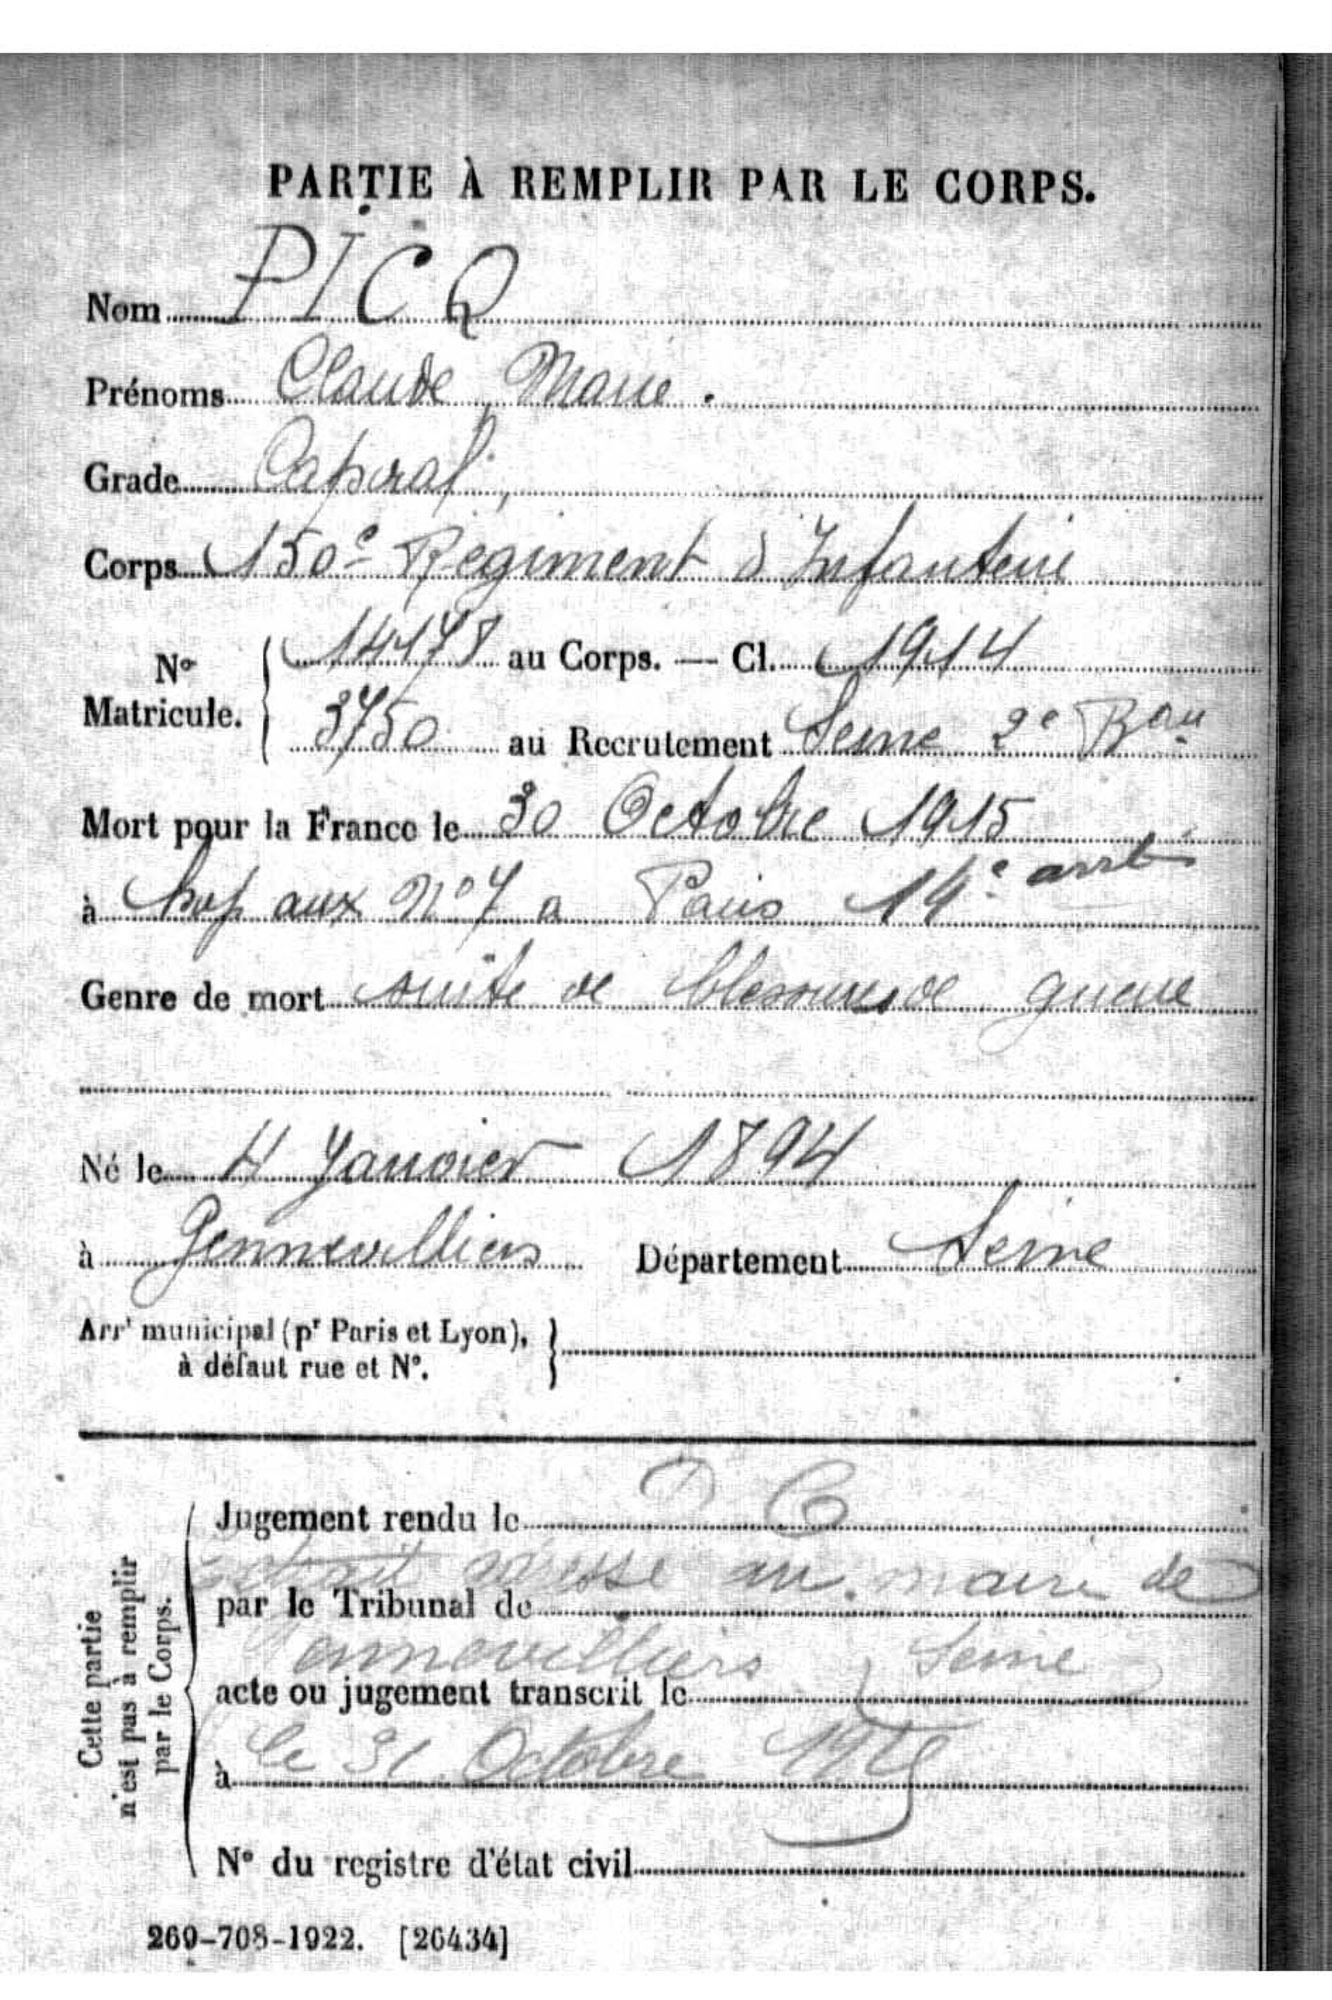 PARTIE À REMPLIR PAR LE CORPS.
Nom PICQ
Prénoms Claude Marie.
Grade Caporal,
Corps 150e Régiment d'Infanterie
N° Matricule. 14178 au Corps. — Cl. 1914
3750 au Recrutement Seine 2e Bau
Mort pour la France le 30 Octobre 1915
à hop aux N°7 a Paris 14e arrt
Genre de mort suite de blessures de guerre
Né le 4 Janvier 1894
à Gennevilliers Département Seine
Arrt municipal (pr Paris et Lyon),
à défaut rue et N°.
Cette partie
n'est pas à remplir
par le Corps.
D C
Jugement rendu le
Extrait adressé au maire de
par le Tribunal de
Gennevilliers, Seine
acte ou jugement transcrit le
le 31 Octobre 1915
à
N° du registre d'état civil
269-708-1922. [26434]